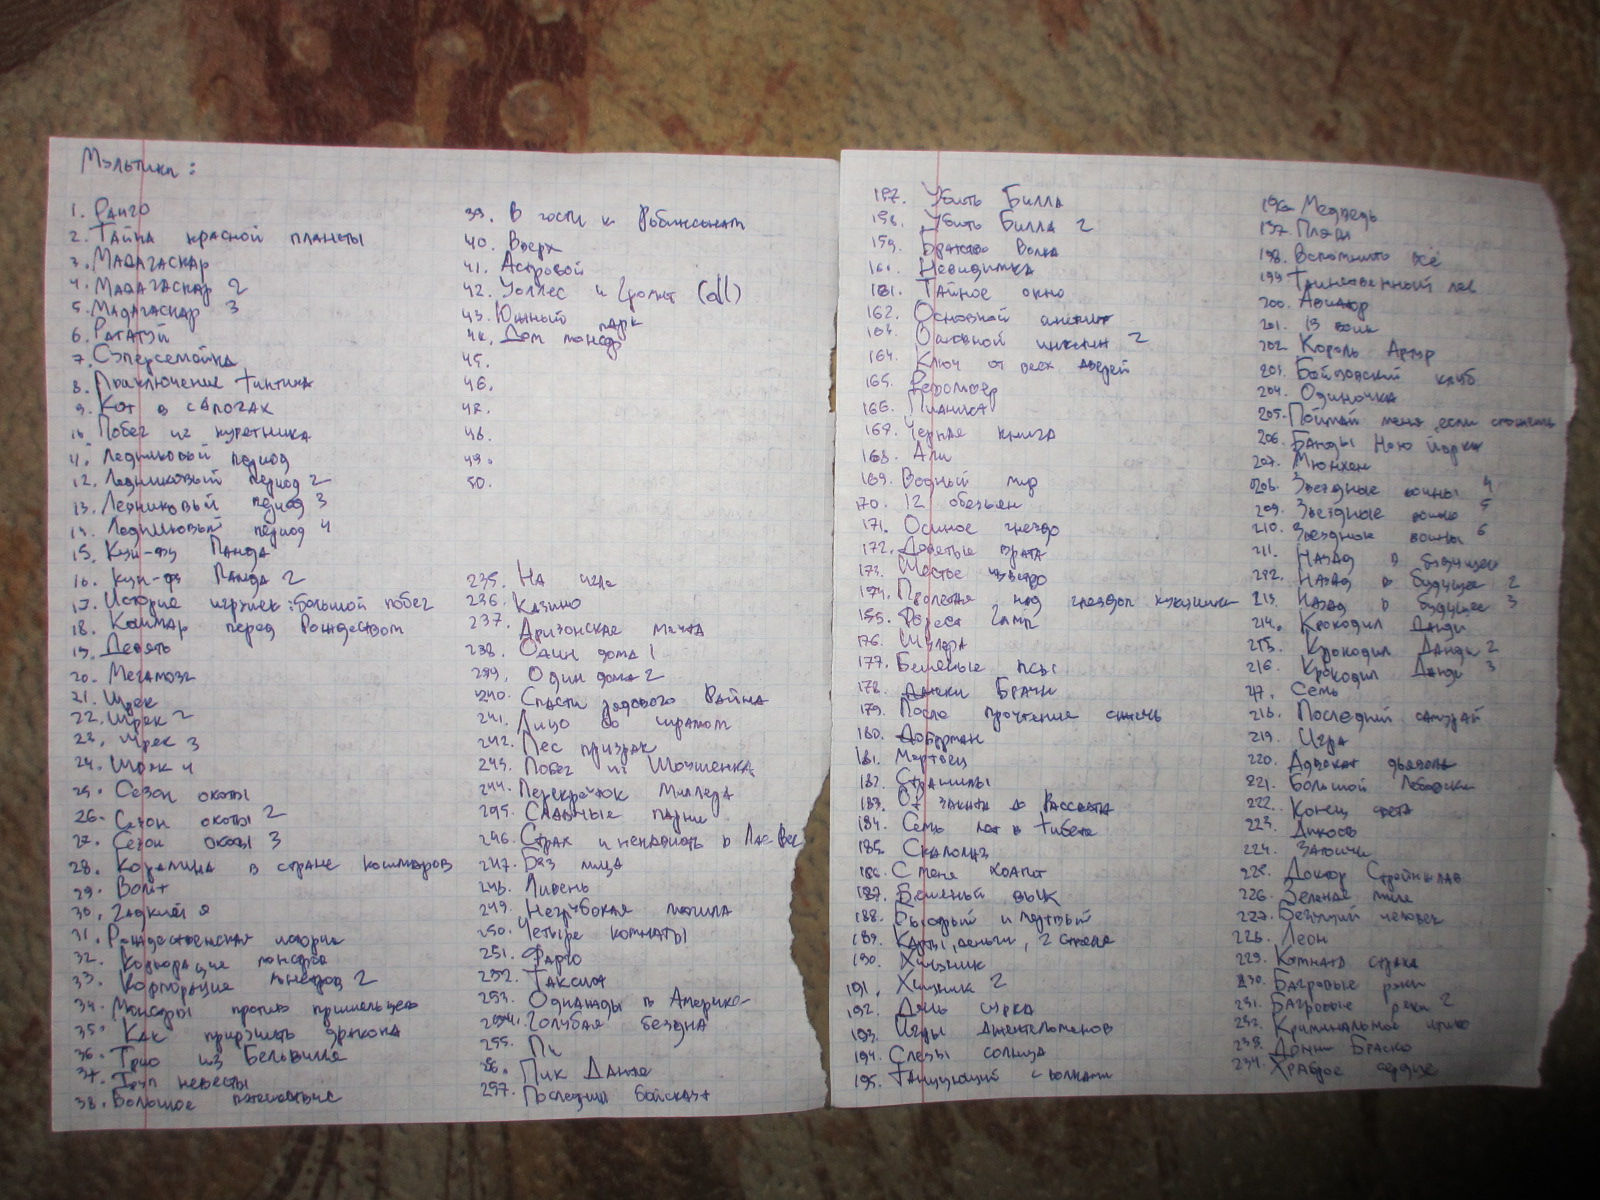 Мэльтики:
1. Ранго
2. Тайна красной планеты
3. Мадагаскар
4. Мадагаскар 2
5. Мадагаскар 3
6. Рататуй
7. Суперсемейка
8. Приключение Тинтина
9. Кот в сапогах
10. Побег из курятника
11. Ледниковый период
12. Ледниковый период 2
13. Ледниковый период 3
14. Ледниковый период 4
15. Кун-фу Панда
16. Кун-фу Панда 2
17. История игрушек: большой побег
18. Кошмар перед Рождеством
19. Девять
20. Мегамозг
21. Шрек
22. Шрек 2
23. Шрек 3
24. Шрек 4
25. Сезон охоты
26. Сезон охоты 2
27. Сезон охоты 3
28. Коралина в стране кошмаров
29. Вольт
30. Гадкий я
31. Рождественская история
32. Корпорация монстров
33. Корпорация монстров 2
34. Монстры против пришельцев
35. Как приручить дракона
36. Трио из Бельвилля
37. Труп невесты
38. Большое путешествие
39. В гости к Робинсонам
40. Вверх
41. Астробой
42. Уоллес и Громит (all)
43. Южный парк
44. Дом монстр
45.
46.
48.
48.
49.
50.
235. На игле
236. Казино
237. Аризонская мечта
238. Один дома 1
239. Один дома 2
240. Спасти рядового Райана
241. Лицо со шрамом
242. Пес призрак
243. Побег из Шоушенка
244. Перекрёток Миллера
245. Славные парни
246. Страх и ненависть в Лас-Вег
247. Без лица
248. Ливень
249. Неглубокая могила
250. Четыре комнаты
251. Фарго
252. Таксист
253. Однажды в Америке
254. Голубая бездна
255. Пи
256. Пик Данте
257. Последний бойскаут
157. Убить Билла
158. Убить Билла 2
159. Братство Волка
161. Невидимка
161. Тайное окно
162. Основной инстинкт
163. Основной инстинкт 2
164. Ключ от всех дверей
165. Реформатор
166. Пианистка
167. Черная книга
168. Али
169. Водный мир
170. 12 обезьян
171. Осиное гнездо
172. Девятые врата
173. Шестое чувство
174. Пролетая над гнездом кукушки
175. Форест Гамп
176. Шкура
177. Бешеные псы
178. Братья
179. После прочтения сжечь
180. Доберман
181. Мертвец
182. Страшилы
183. От заката до Рассвета
184. Семь лет в Тибете
185. Скалолаз
186. Степей
187. Бешеный бык
188. Быстрый и мертвый
189. Карты, деньги, 2 ствола
190. Хищник
191. Хищник 2
192. День сурка
193. Игры джентельменов
194. Слезы солнца
195. Танцующий с волками
196. Медведь
197. Пляж
198. Вспомнить всё
199. Таинственный лес
200. Авиатор
201. 13 воин
202. Король Артур
203. Бойцовский клуб
204. Одиночка
205. Поймай меня если сможешь
206. Банды Нью йорка
207. Мюнхен
208. Звездные войны 4
209. Звездные войны 5
210. Звездные войны 6
211. Назад в будущее
212. Назад в будущее 2
213. Назад в будущее 3
214. Крокодил Данди
215. Крокодил Данди 2
216. Крокодил Данди 3
217. Семь
218. Последний самурай
219. Игра
220. Адвокат дьявола
221. Большой Лебовски
222. Конец света
223. Дикость
224. Затоичи
225. Доктор Стрейнджлав
226. Зеленая миля
227. Бегущий человек
228. Леон
229. Комната страха
230. Багровые реки
231. Багровые реки 2
232. Криминальное чтиво
233. Донни Браско
234. Храброе сердце